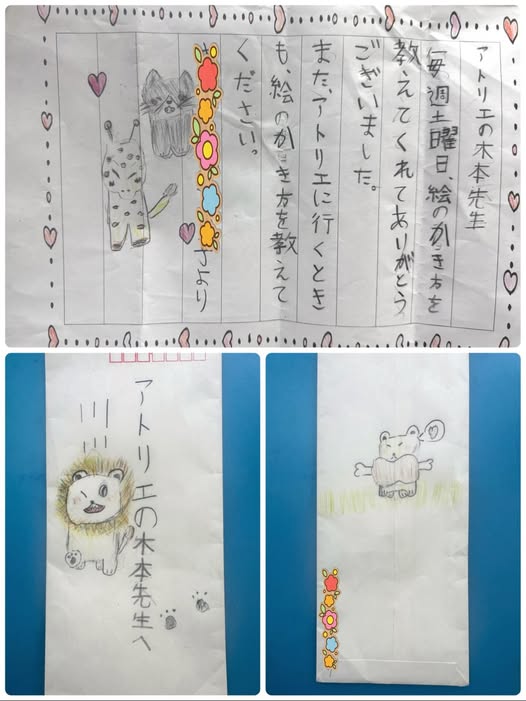 アトリエの木本先生
毎週土曜日、絵のかき方を
教えてくれてありがとう
ございました。
また、アトリエに行くとき
も、絵のかき方を教えて
ください。
より
アトリエの木本先生へ